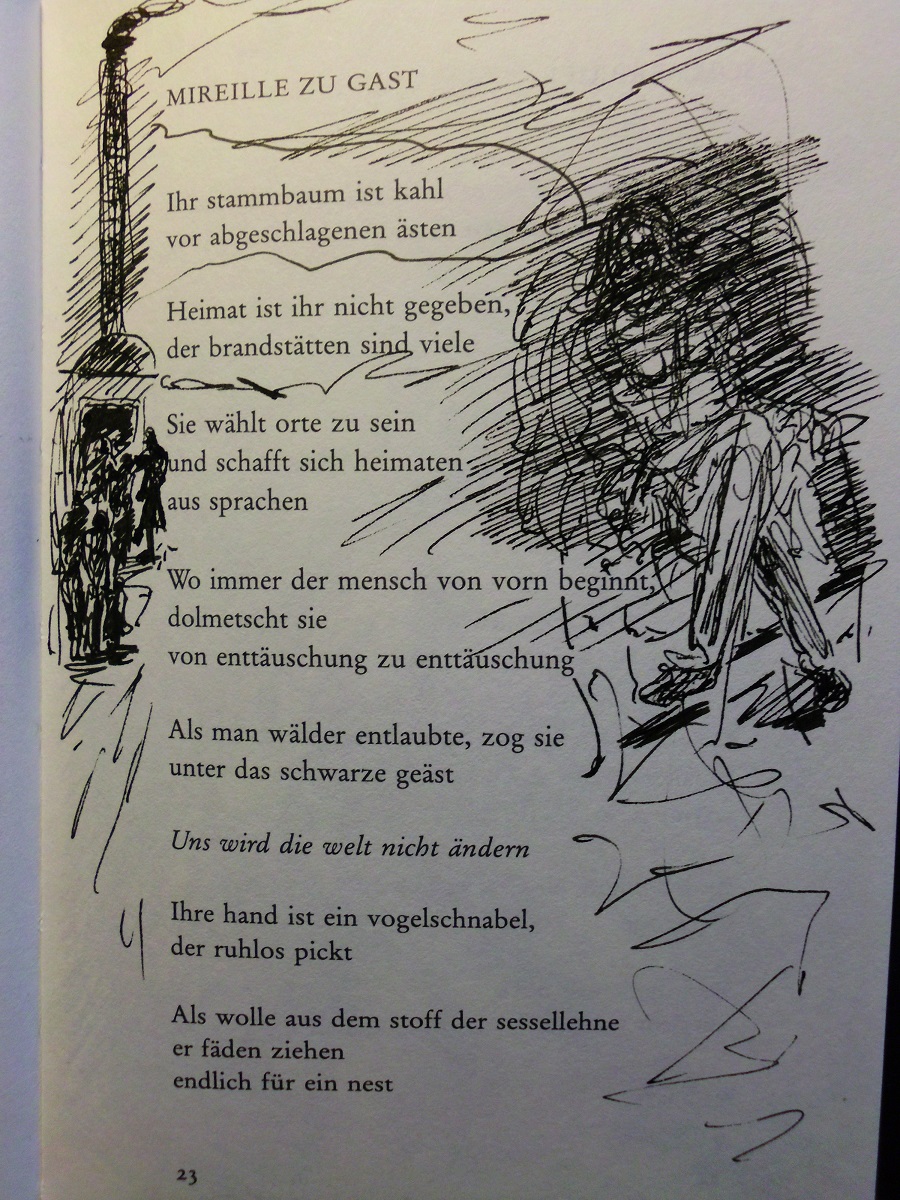 MIREILLE ZU GAST
Ihr stammbaum ist kahl
vor abgeschlagenen ästen
Heimat ist ihr nicht gegeben,
der brandstätten sind viele
Sie wählt orte zu sein
und schafft sich heimaten
aus sprachen
Wo immer der mensch von vorn beginnt,
dolmetscht sie
von enttäuschung zu enttäuschung
Als man wälder entlaubte, zog sie
unter das schwarze geäst
Uns wird die welt nicht ändern
Ihre hand ist ein vogelschnabel,
der ruhlos pickt
Als wolle aus dem stoff der sessellehne
er fäden ziehen
endlich für ein nest
23